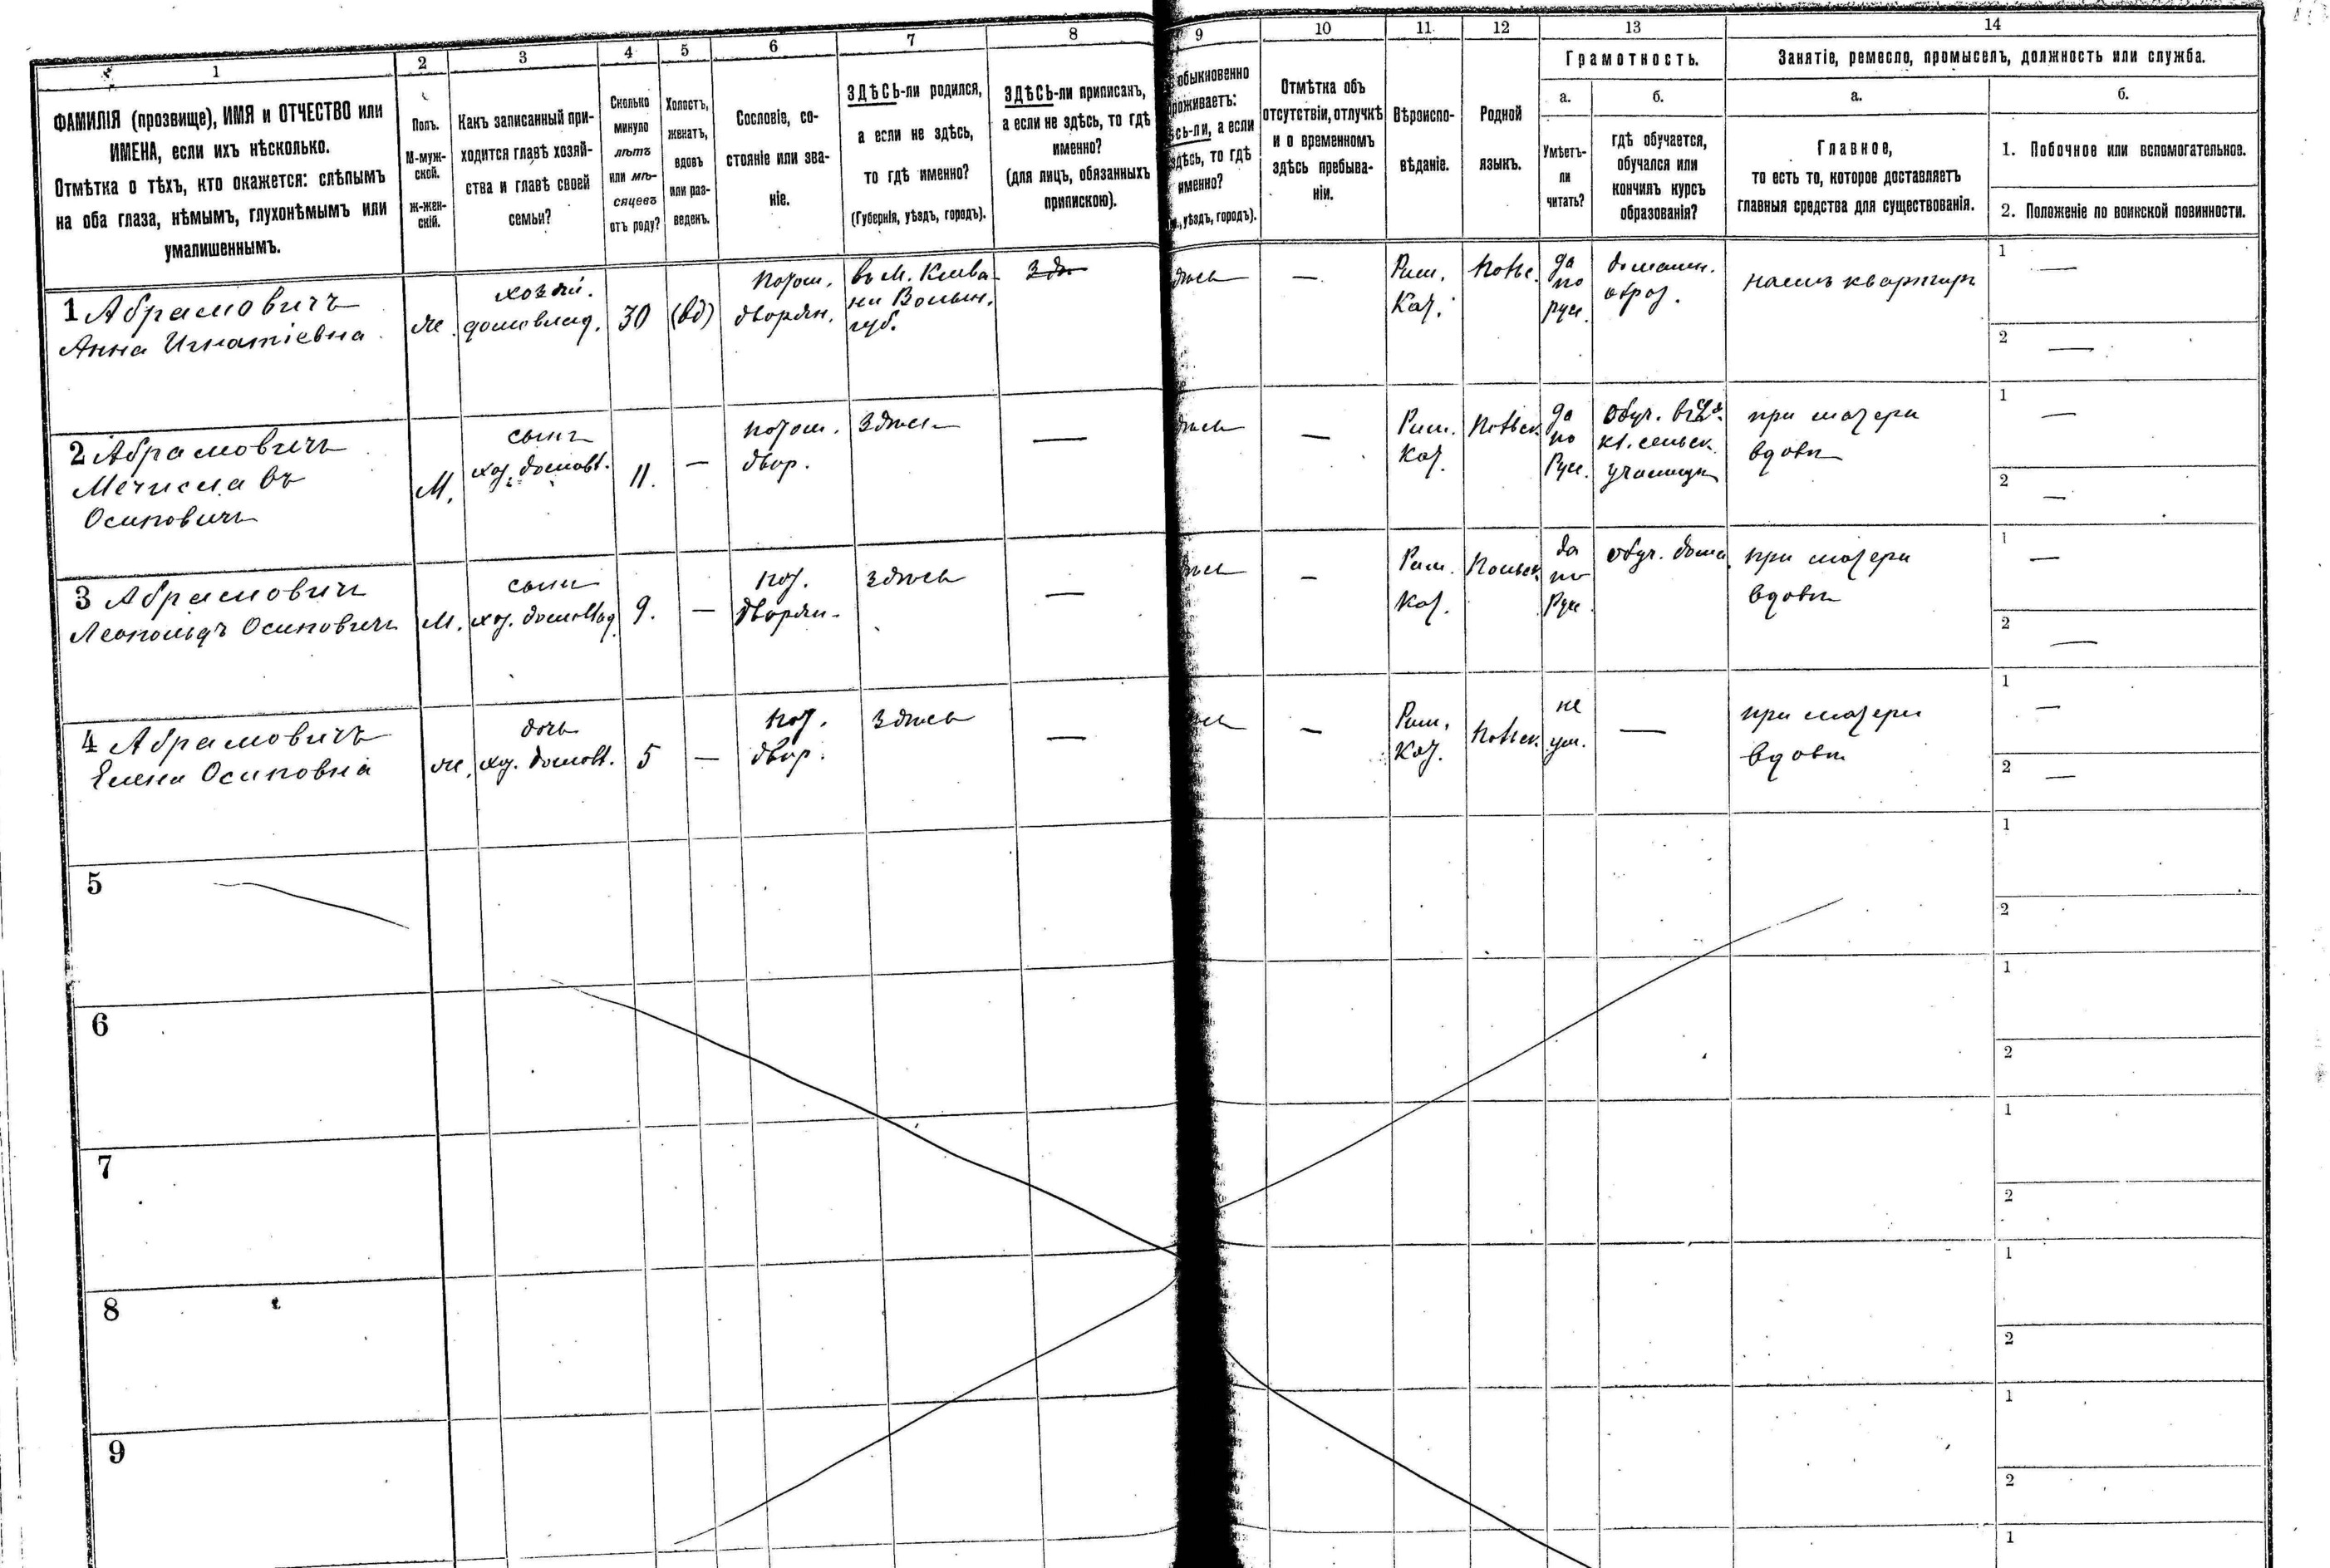 1
2
3
4
5
6
7
8
9
10
11
12
13
14
ФАМИЛІЯ (прозвище), ИМЯ и ОТЧЕСТВО или
ИМЕНА, если ихъ нѣсколько.
Отмѣтка о тѣхъ, кто окажется: слѣпымъ
на оба глаза, нѣмымъ, глухонѣмымъ или
умалишеннымъ.
Полъ.
М-муж-
ской.
ж-жен-
скій.
Какъ записанный при-
ходится главѣ хозяй-
ства и главѣ своей
семьи?
Сколько
минуло
лѣтъ
или мѣ-
сяцевъ
отъ роду?
Холостъ,
женатъ,
вдовъ
или раз-
веденъ.
Сословіе, со-
стояніе или зва-
ніе.
ЗДѢСЬ-ли родился,
а если не здѣсь,
то гдѣ именно?
(Губернія, уѣздъ, городъ).
ЗДѢСЬ-ли приписанъ,
а если не здѣсь, то гдѣ
именно?
(для лицъ, обязанныхъ
припискою).
обыкновенно
роживаетъ:
сь-ли, а если
здѣсь, то гдѣ
именно?
уѣздъ, городъ).
Отмѣтка объ
отсутствіи, отлучкѣ
и о временномъ
здѣсь пребыва-
ніи.
Вѣроиспо-
вѣданіе.
Родной
языкъ.
Грамотность.
а.
Умѣетъ-
ли
читать?
б.
гдѣ обучается,
обучался или
кончилъ курсъ
образованія?
Занятіе, ремесло, промыселъ, должность или служба.
а.
Главное,
то есть то, которое доставляетъ
главныя средства для существованія.
б.
1. Побочное или вспомогательное.
2. Положеніе по воинской повинности.
1 Абрамовичъ
Анна Игнатіевна
ж.
хозяй.
домовлад.
30
(вд)
потом.
дворян.
въ М. Клева-
ни Волын.
губ.
здѣсь
—
Рим.
Кат.
да
по
рус.
домашн.
образ.
наемъ квартиръ
1 —
2 —
2 Абрамовичъ
Мечиславъ
Осиповичъ
М.
сынъ
хоз. домовл.
11.
—
потом.
двор.
здѣсь
—
—
Рим.
Кат.
Польск.
да
по
Рус.
кл. сельск.
при матери
вдовѣ
1 —
2 —
3 Абрамовичъ
Леопольдъ Осиповичъ
М.
сынъ
хоз. домовлад.
9.
—
пот.
дворян.
здѣсь
—
—
Рим.
Кат.
Польск.
да
по
Рус.
обуч. дома
при матери
вдовѣ
1 —
2 —
4 Абрамовичъ
Елена Осиповна
ж.
дочь
хоз. домовл.
5
—
пот.
двор.
здѣсь
—
—
Рим.
Кат.
Польск.
не
ум.
—
при матери
вдовѣ
1 —
2 —
5
1
2
6
1
2
7
1
2
8
1
2
9
1
2
1